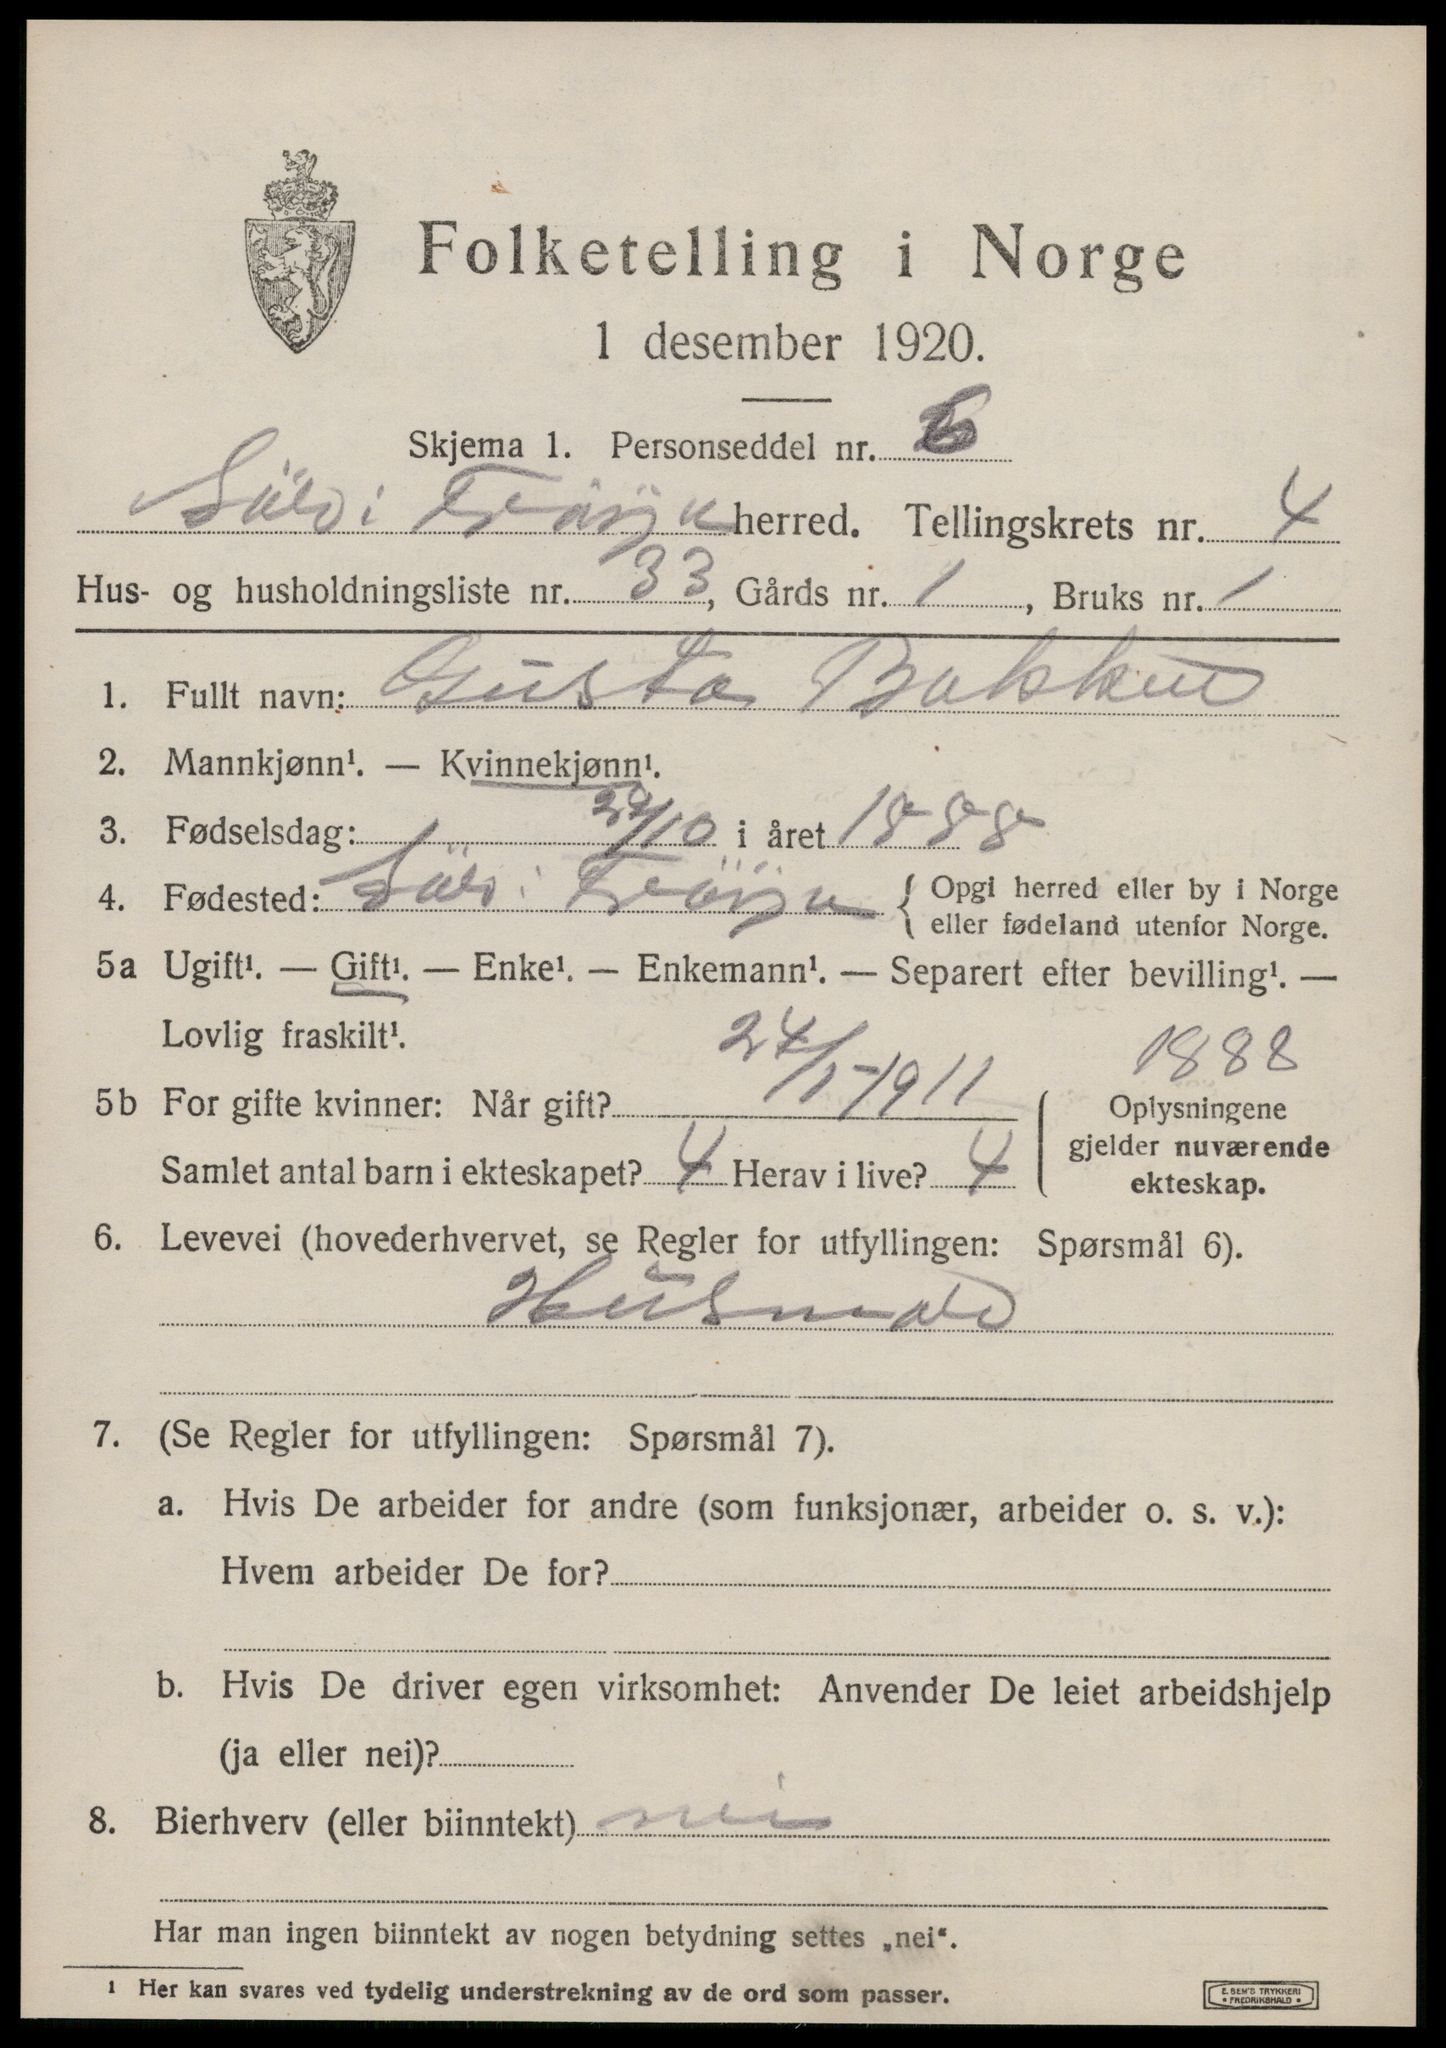 Folketelling i Norge
1 desember 1920.
Skjema 1. Personseddel nr. 6
Sør-Frøya herred. Tellingskrets nr. 4
Hus- og husholdningsliste nr. 33, Gårds nr. 1, Bruks nr. 1
1. Fullt navn: Gusta Bakken
2. Mannkjønn¹. — Kvinnekjønn¹.
3. Fødselsdag: /10 i året 1888
4. Fødested: { Opgi herred eller by i Norge
eller fødeland utenfor Norge.
5a Ugift¹. — Gift¹. — Enke¹. — Enkemann¹. — Separert efter bevilling¹. —
Lovlig fraskilt¹.
1888
5b For gifte kvinner: Når gift? 24/5-1911
Samlet antal barn i ekteskapet? 4 Herav i live? 4
Oplysningene
gjelder nuværende
ekteskap.
6. Levevei (hovederhvervet, se Regler for utfyllingen: Spørsmål 6).
Husmor
7. (Se Regler for utfyllingen: Spørsmål 7).
a. Hvis De arbeider for andre (som funksjonær, arbeider o. s. v.):
Hvem arbeider De for?
b. Hvis De driver egen virksomhet: Anvender De leiet arbeidshjelp
(ja eller nei)?
8. Bierhverv (eller biinntekt) nei
Har man ingen biinntekt av nogen betydning settes „nei“.
1 Her kan svares ved tydelig understrekning av de ord som passer.
E. SEM'S TRYKKERI
• FREDRIKSHALD •